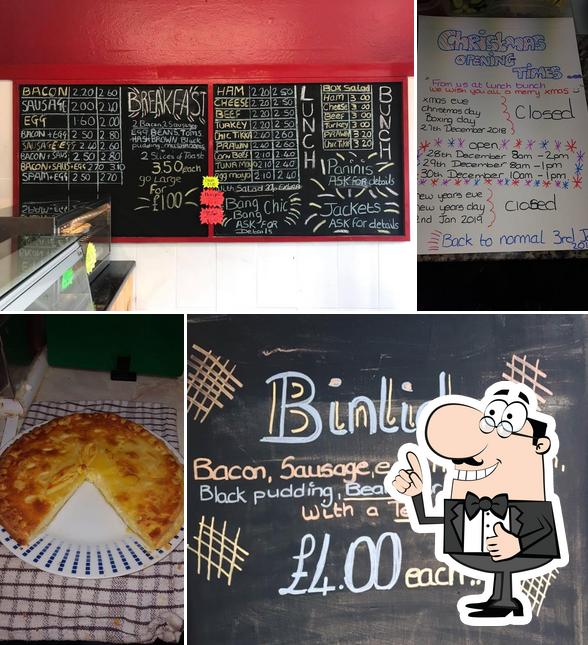 BACON 2.20 2.60
SAUSAGE 2.00 2.40
EGG 1.60 2.00
BACON + EGG 2.50
SAUSAGE + EGG 2.40
BACON + SAUS 2.50 2.80
BACON + SAUS + EGG 2.70 3.10
SPAM + EGG 2.50 2.70
BREAKFAST
Bacon 2 Sausages
EGG BEANS, TOMS,
HASH BROWN, Black
pudding, mushrooms
2 SLICES of TOAST
3.50 each
go Large
FOR
£1.00
HAM 2.20 2.50
CHEESE 2.20 2.50
BEEF 2.20 2.50
TURKEY 2.20 2.50
CHIC TIKKA
PRAWN
CORN BEEF 2.10 2.40
TUNA MAYO 2.10 2.40
Egg mayo 2.10 2.40
With Salad
Bang Chic
Bang
ASK FOR
Details
LUNCH
BOX Salad
HAM 3.00
CHEESE 3.00
BEEF 3.00
TURKEY 3.00
CHIC TIKKA 3.20
PRAWN 3.20
TUNA 3.20
BUNCH
Paninis
ASK FOR details
Jackets
ASK for details
Christmas
OPENING
TIMES
"From us at lunch bunch
we wish you all a merry xmas"
xmas eve
christmas day
Boxing day
27th December 2018
Closed
open
28th December 8am - 2pm
29th December 8am - 1pm
30th December 10am - 1pm
new years eve
new years day
2nd Jan 2019
Closed
Back to normal 3rd J
2019
Binlid
Bacon, Sausage,
Black pudding,
with a
£4.00 each